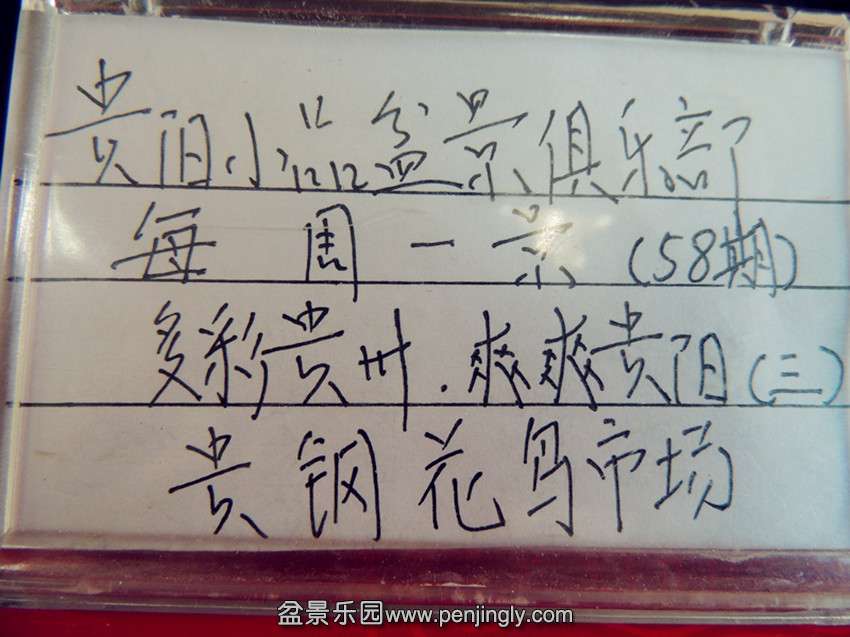 贵阳小品盆景俱乐部
每周一景(58期)
多彩贵州.爽爽贵阳(三)
贵钢花鸟市场
盆景乐园www.penjingly.com